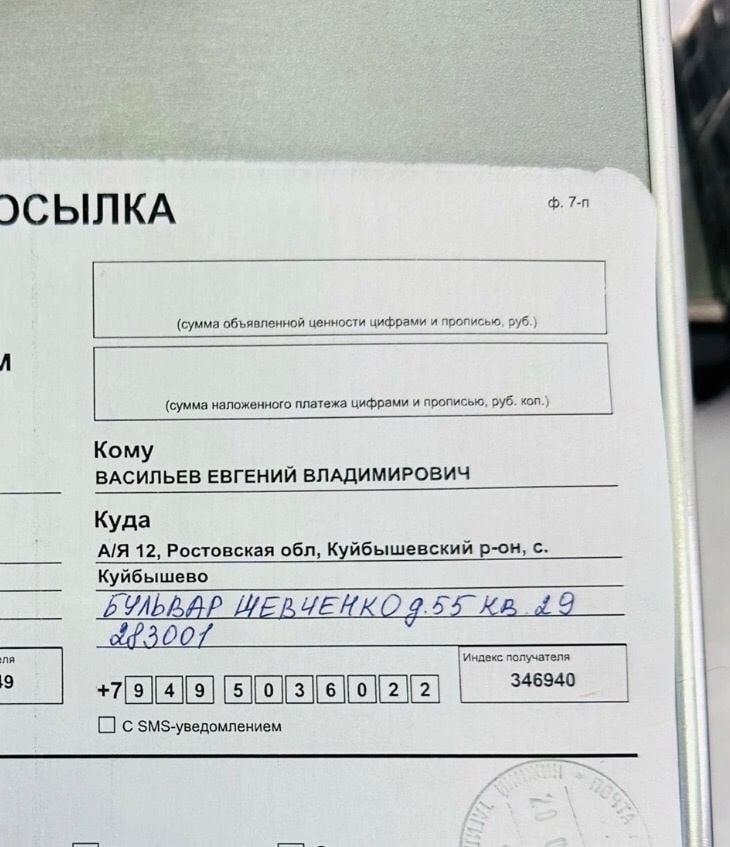 ОСЫЛКА
ф. 7-п
(сумма объявленной ценности цифрами и прописью, руб.)
м
(сумма наложенного платежа цифрами и прописью, руб. коп.)
Кому
ВАСИЛЬЕВ ЕВГЕНИЙ ВЛАДИМИРОВИЧ
Куда
А/Я 12, Ростовская обл, Куйбышевский р-он, с.
Куйбышево
БУЛЬВАР ШЕВЧЕНКО д.55 КВ 29
283001
еля
49
Индекс получателя
346940
+7 9 4 9 5 0 3 6 0 2 2
С SMS-уведомлением
ПОЧТА